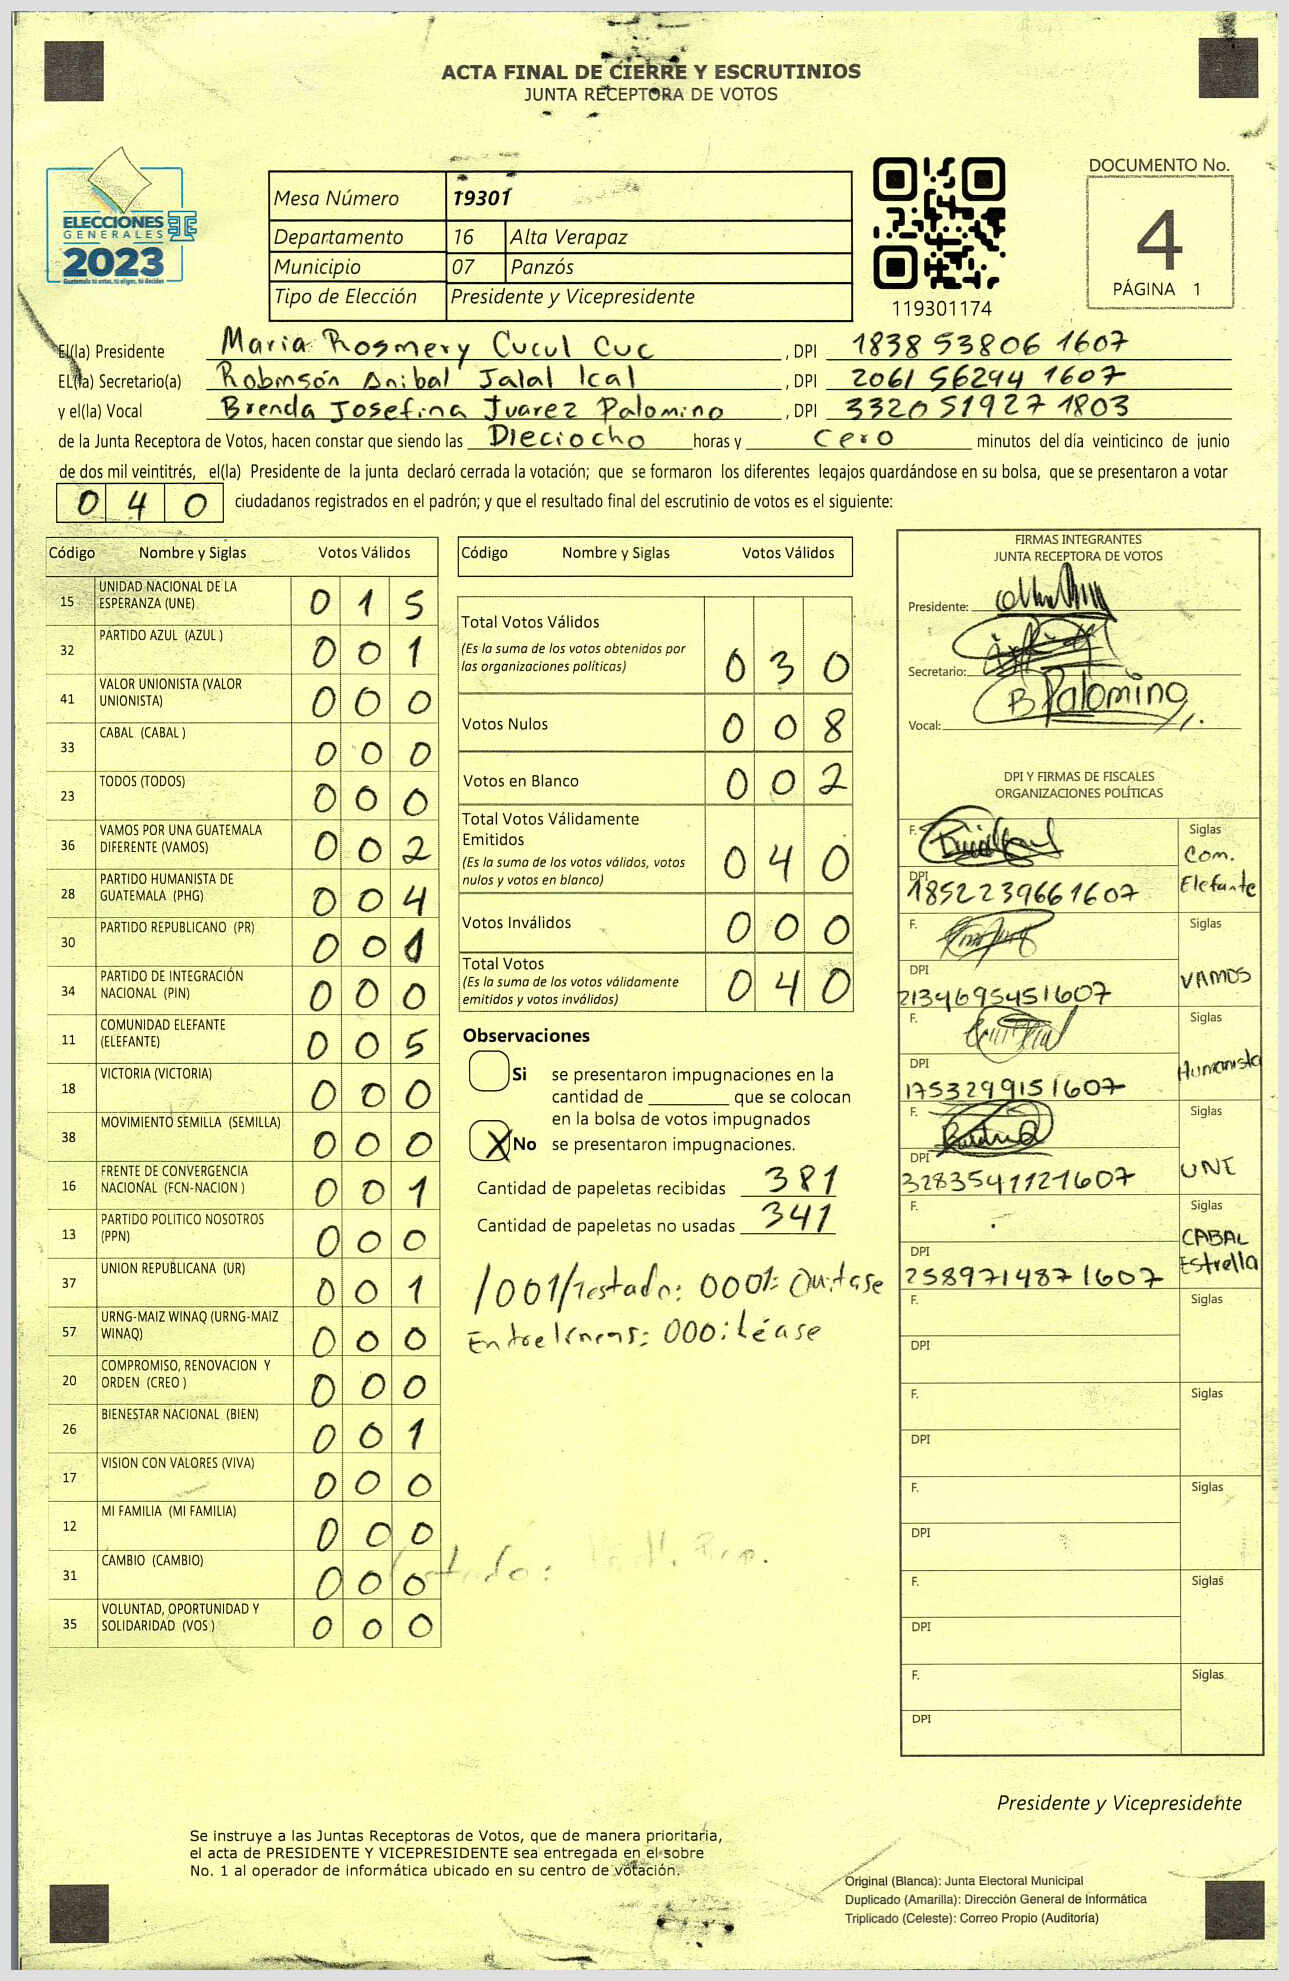 ACTA FINAL DE CIERRE Y ESCRUTINIOS
JUNTA RECEPTORA DE VOTOS
ELECCIONES
GENERALES
2023
Guatemala tú votas, tú eliges, tú decides
Mesa Número 19301
Departamento 16 Alta Verapaz
Municipio 07 Panzós
Tipo de Elección Presidente y Vicepresidente
119301174
DOCUMENTO No.
4
PÁGINA 1
El(la) Presidente Maria Rosmery Cucul Cuc, DPI 1838 53806 1607
EL(la) Secretario(a) Robinsón Anibal Jalal Ical, DPI 2061 56294 1607
y el(la) Vocal Brenda Josefina Juarez Palomino, DPI 3320 51927 1803
de la Junta Receptora de Votos, hacen constar que siendo las Dieciocho horas y cero minutos del día veinticinco de junio
de dos mil veintitrés, el(la) Presidente de la junta declaró cerrada la votación; que se formaron los diferentes legajos guardándose en su bolsa, que se presentaron a votar
040 ciudadanos registrados en el padrón; y que el resultado final del escrutinio de votos es el siguiente:
Código Nombre y Siglas Votos Válidos
15 UNIDAD NACIONAL DE LA ESPERANZA (UNE) 015
32 PARTIDO AZUL (AZUL ) 001
41 VALOR UNIONISTA (VALOR UNIONISTA) 000
33 CABAL (CABAL ) 000
23 TODOS (TODOS) 000
36 VAMOS POR UNA GUATEMALA DIFERENTE (VAMOS) 002
28 PARTIDO HUMANISTA DE GUATEMALA (PHG) 004
30 PARTIDO REPUBLICANO (PR) 001
34 PARTIDO DE INTEGRACIÓN NACIONAL (PIN) 000
11 COMUNIDAD ELEFANTE (ELEFANTE) 005
18 VICTORIA (VICTORIA) 000
38 MOVIMIENTO SEMILLA (SEMILLA) 000
16 FRENTE DE CONVERGENCIA NACIONAL (FCN-NACION ) 001
13 PARTIDO POLITICO NOSOTROS (PPN) 000
37 UNION REPUBLICANA (UR) 001
57 URNG-MAIZ WINAQ (URNG-MAIZ WINAQ) 000
20 COMPROMISO, RENOVACION Y ORDEN (CREO ) 000
26 BIENESTAR NACIONAL (BIEN) 001
17 VISION CON VALORES (VIVA) 000
12 MI FAMILIA (MI FAMILIA) 000
31 CAMBIO (CAMBIO) 000
35 VOLUNTAD, OPORTUNIDAD Y SOLIDARIDAD (VOS ) 000
Código Nombre y Siglas Votos Válidos
Total Votos Válidos 030
(Es la suma de los votos obtenidos por
las organizaciones políticas)
Votos Nulos 008
Votos en Blanco 002
Total Votos Válidamente
Emitidos 040
(Es la suma de los votos válidos, votos
nulos y votos en blanco)
Votos Inválidos 000
Total Votos 040
(Es la suma de los votos válidamente
emitidos y votos inválidos)
Observaciones
Si se presentaron impugnaciones en la
cantidad de ________ que se colocan
en la bolsa de votos impugnados
X No se presentaron impugnaciones.
Cantidad de papeletas recibidas 381
Cantidad de papeletas no usadas 341
/001/Testado: 0001: Omitase
Entrelíneas: 000: Léase
FIRMAS INTEGRANTES
JUNTA RECEPTORA DE VOTOS
Presidente:
Secretario:
Vocal: B Palomino
DPI Y FIRMAS DE FISCALES
ORGANIZACIONES POLÍTICAS
F. Siglas Com. Elefante
DPI 1852239661607
F. Siglas VAMOS
DPI 2134695451607
F. Siglas Humanista
DPI 1753299151607
F. Siglas UNE
DPI 3283541121607
F. Siglas CABAL Estrella
DPI 2589714871607
F. Siglas
DPI
F. Siglas
DPI
F. Siglas
DPI
F. Siglas
DPI
F. Siglas
DPI
Presidente y Vicepresidente
Se instruye a las Juntas Receptoras de Votos, que de manera prioritaria,
el acta de PRESIDENTE Y VICEPRESIDENTE sea entregada en el sobre
No. 1 al operador de informática ubicado en su centro de votación.
Original (Blanca): Junta Electoral Municipal
Duplicado (Amarilla): Dirección General de Informática
Triplicado (Celeste): Correo Propio (Auditoría)